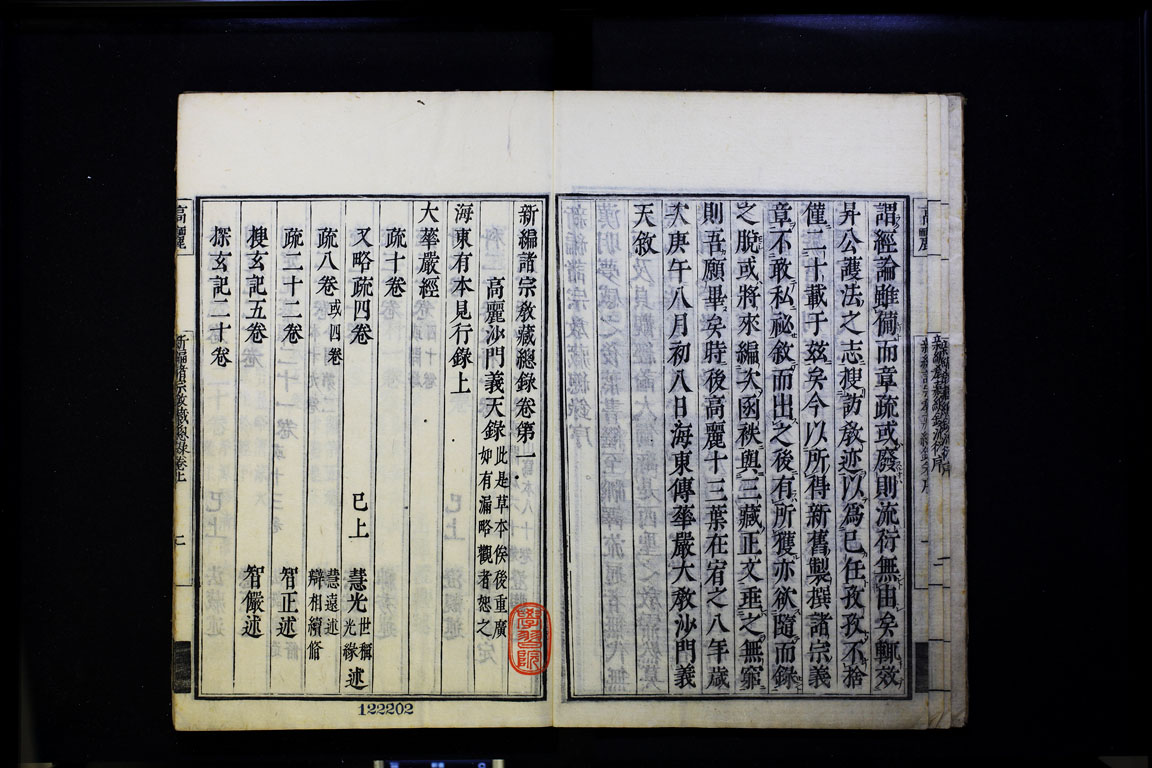 謂經論雖備而章疏或廢則流衍無由矣輒效
昇公護法之志搜訪敎迹以爲己任孜孜不捨
僅二十載于玆矣今以所得新舊製撰諸宗義
章不敢私祕敘而出之後有所獲亦欲隨而錄
之脫或將來編次函秩與三藏正文垂之無窮
則吾願畢矣時後高麗十三葉在宥之八年歲
次庚午八月初八日海東傳華嚴大敎沙門義
天敘
新編諸宗敎藏總錄卷第一
高麗沙門義天錄 此是草本俟後重廣
如有漏略觀者恕之
海東有本見行錄上
大華嚴經
疏十卷
又略疏四卷 已上 慧光 世稱
光緣 述
疏八卷 或四卷 慧遠述
辯相續脩
疏二十二卷 智正述
搜玄記五卷 智儼述
探玄記二十卷
高麗
新編諸宗敎藏總錄卷上
二
122202